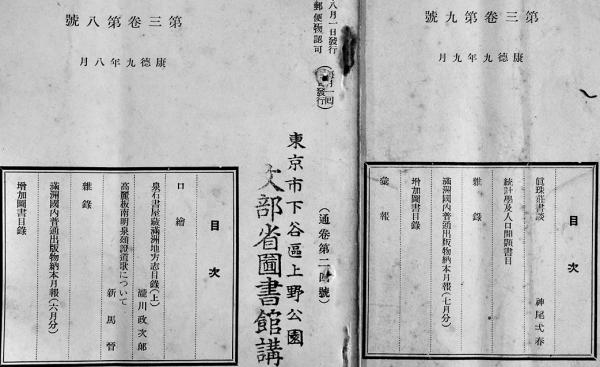 第三卷第九號
康德九年九月
目次
眞珠莊書談　神尾弌春
統計學及人口問題書目
雜錄
滿洲國內普通出版物納本月報（七月分）
增加圖書目錄
彙報
八月一日發行
郵便物認可
發行
東京市下谷區上野公園
文部省圖書館講
（通卷第二
號）
第三卷第八號
康德九年八月
目次
口繪
泉石書屋藏滿洲地方志目錄（上）　瀧川政次郎
高麗板南明泉頌證道歌について　新馬晉
雜錄
滿洲國內普通出版物納本月報（六月分）
增加圖書目錄